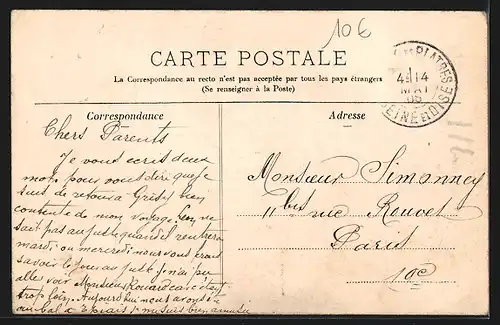 106
CARTE POSTALE
La Correspondance au recto n'est pas acceptée par tous les pays étrangers
(Se renseigner à la Poste)
Correspondance
Adresse
4 14
MAI
SEINE & OISE
Chers Parents
Je vous ecris deux
mots pour vous dire que je
suis de retour a Grisy bien
contente de mon voyage. en ne
sait pas au juste quand il rentrera
mardi ou mercredi nous vous
savoir le jour au juste
aller voir Monsieur car c'etait
trop loin. Aujourd'hui nous avons ete
au bal a bien amusee
Monsieur Simonney
11 bis rue Rouvet
Paris
19e